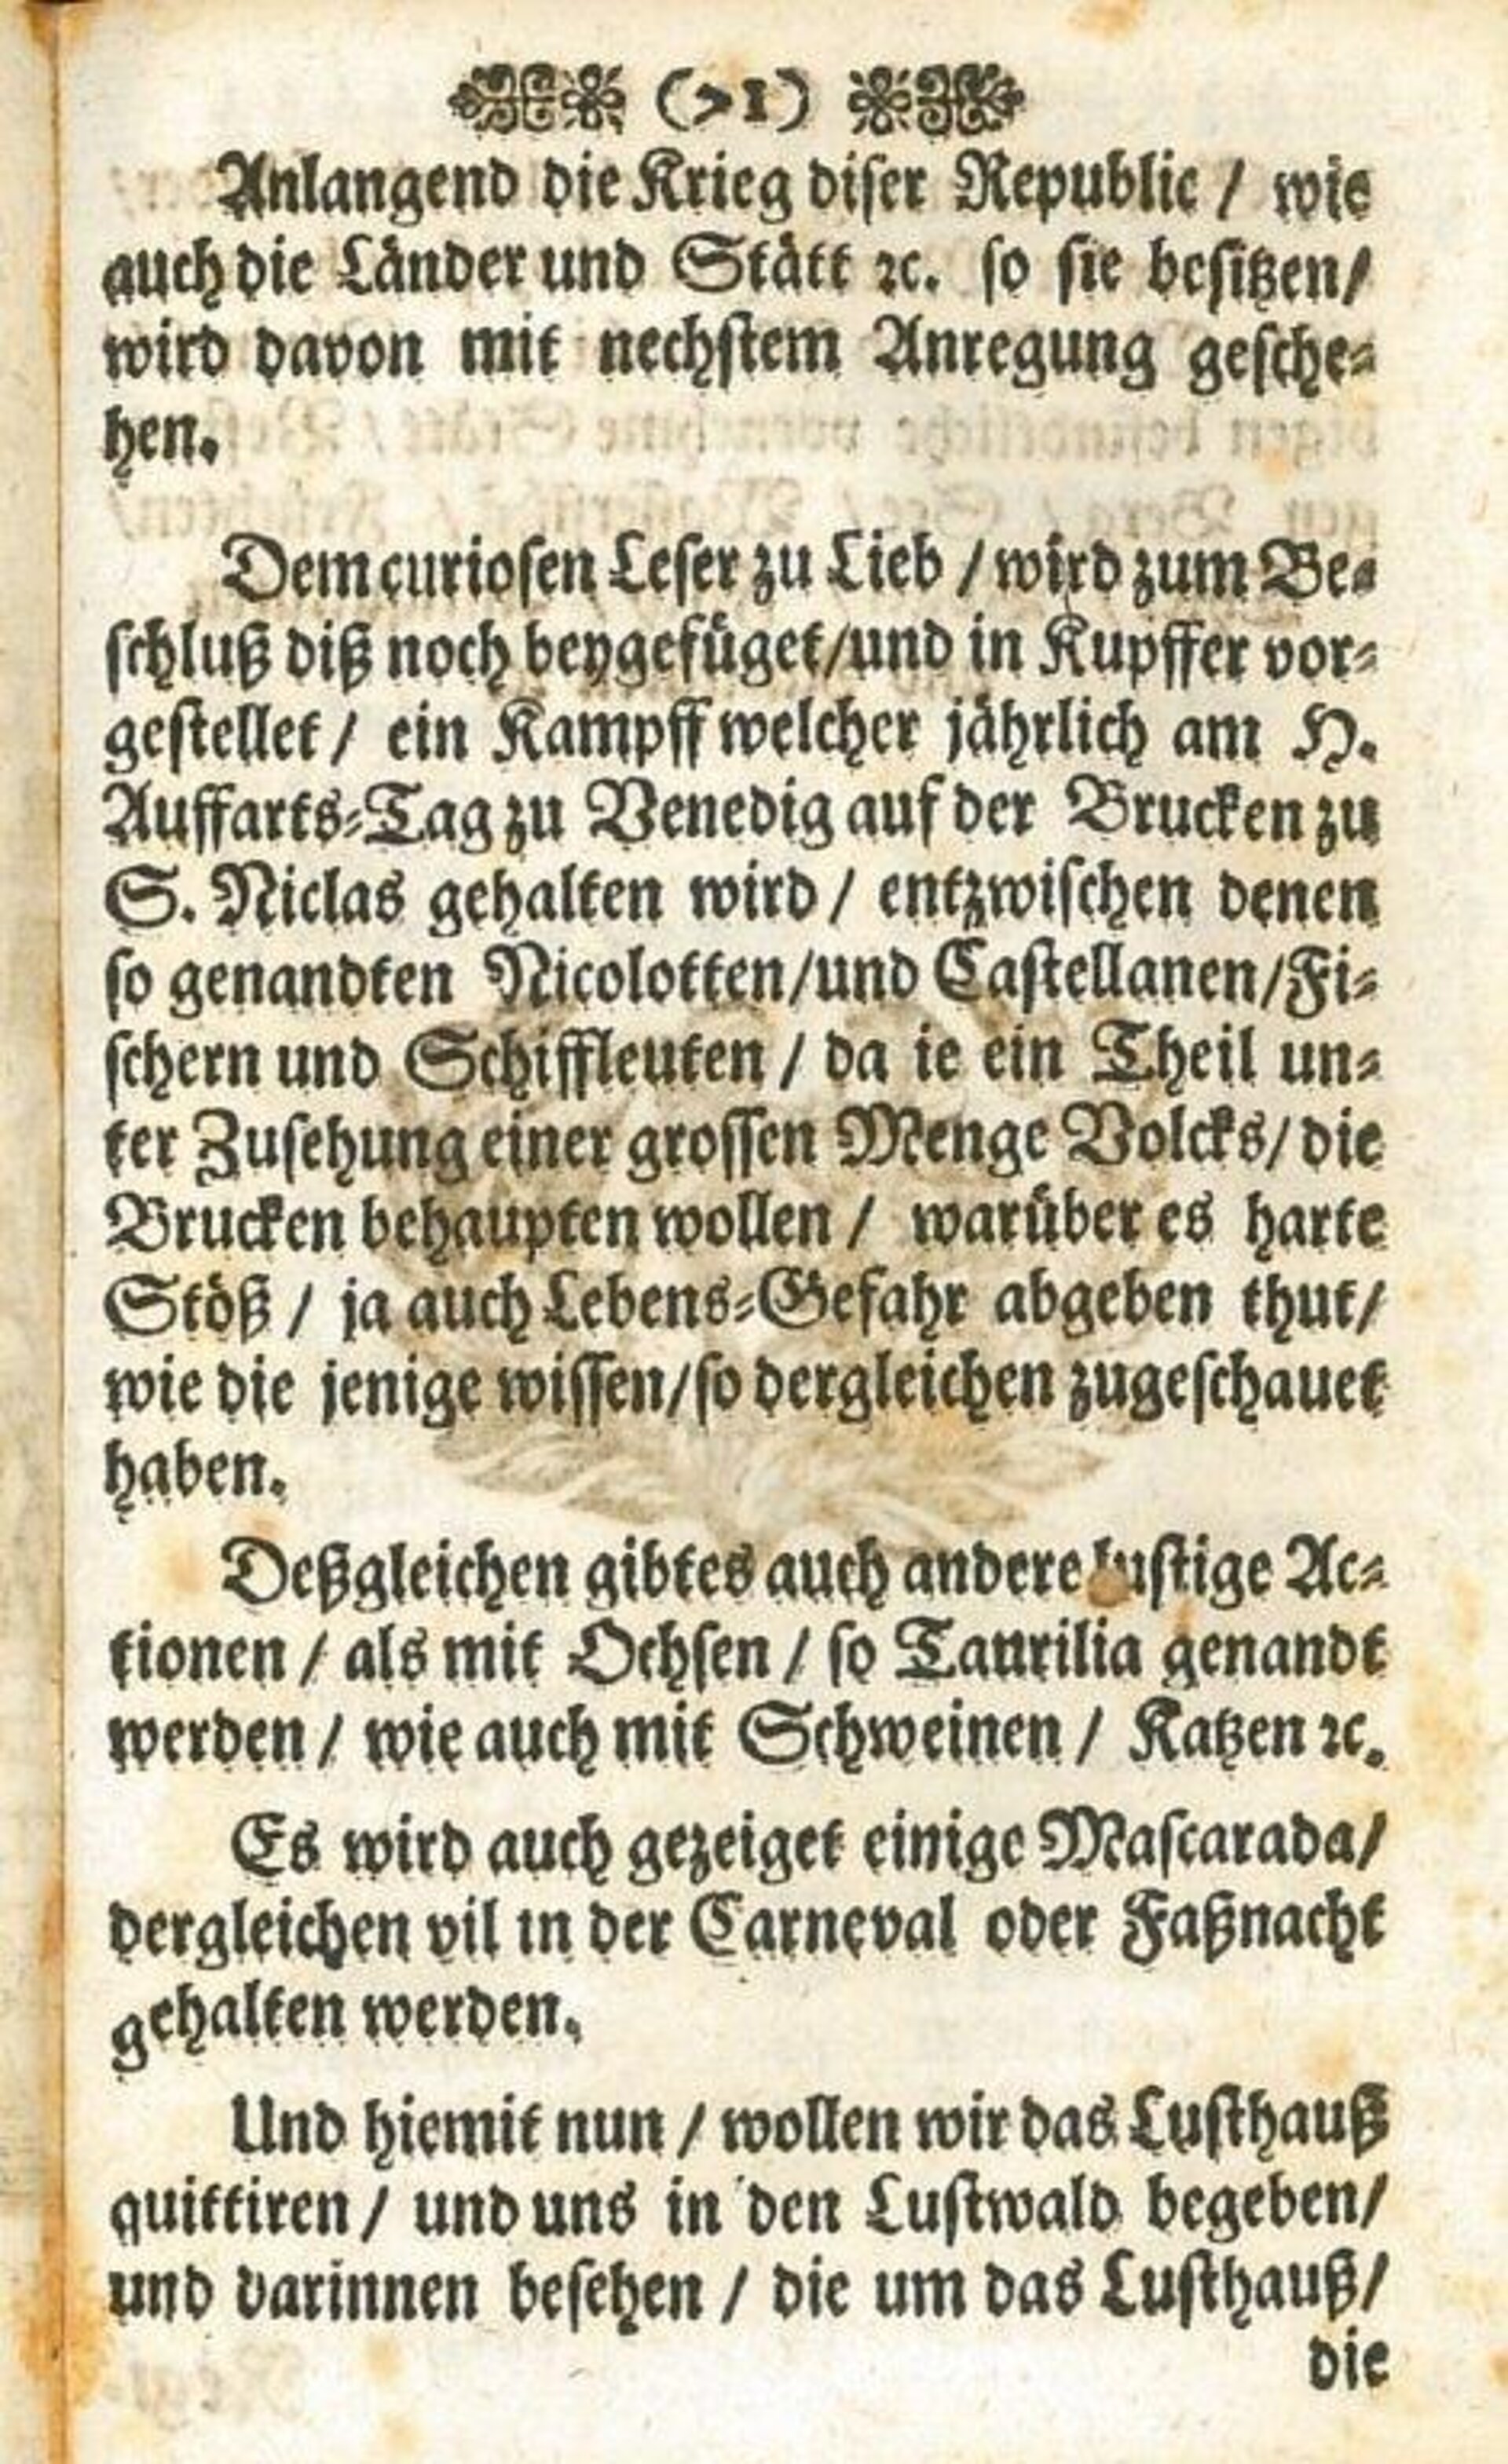 (71)
Anlangend die Krieg diser Republic / wie
auch die Länder und Stätt ꝛc. so sie besitzen/
wird davon mit nechstem Anregung gesche-
hen.
Dem curiosen Leser zu Lieb / wird zum Be-
schluß diß noch beygefüget/und in Kupffer vor-
gestellet / ein Kampff welcher jährlich am H.
Auffarts-Tag zu Venedig auf der Brucken zu
S. Niclas gehalten wird / entzwischen denen
so genandten Nicolotten/und Castellanen/Fi-
schern und Schiffleuten / da ie ein Theil un-
ter Zusehung einer grossen Menge Volcks/ die
Brucken behaupten wollen / warüber es harte
Stöß / ja auch Lebens-Gefahr abgeben thut/
wie die jenige wissen/so dergleichen zugeschauet
haben.
Deßgleichen gibt es auch andere lustige Ac-
tionen / als mit Ochsen / so Taurilia genandt
werden / wie auch mit Schweinen / Katzen ꝛc.
Es wird auch gezeiget einige Mascarada/
dergleichen vil in der Carneval oder Faßnacht
gehalten werden.
Und hiemit nun / wollen wir das Lusthauß
quittiren / und uns in den Lustwald begeben/
und darinnen besehen / die um das Lusthauß/
die